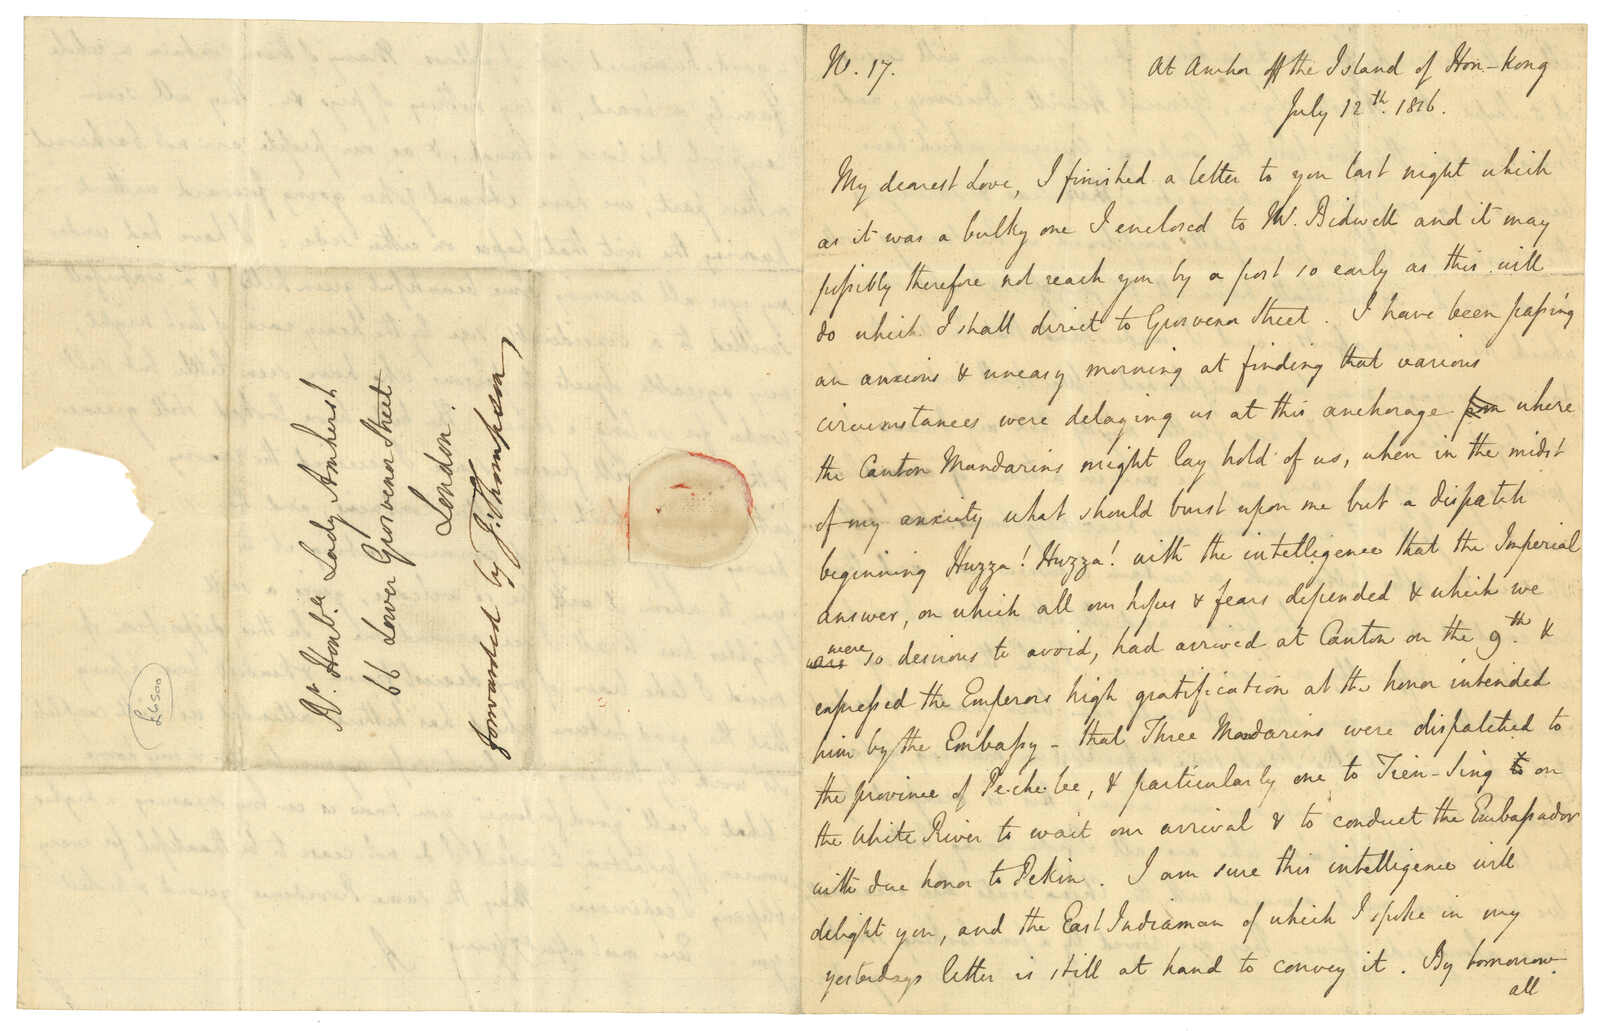 Rt. Honble. Lady Amherst
66 Lower Grosvenor Street
London.
forwarded by J. Thompson
£6500
N. 17.
At Anchor off the Island of Hon-Kong
July 12th. 1816.
My dearest Love, I finished a letter to you last night which
as it was a bulky one I enclosed to Mr. Bidwell and it may
possibly therefore not reach you by a post so early as this will
do which I shall direct to Grosvenor Street. I have been passing
an anxious & uneasy morning at finding that various
circumstances were delaying us at this anchorage where
the Canton Mandarins might lay hold of us, when in the midst
of my anxiety what should burst upon me but a dispatch
beginning Huzza! Huzza! with the intelligence that the Imperial
answer, on which all our hopes & fears depended & which we
were so desirous to avoid, had arrived at Canton on the 9th. &
expressed the Emperors high gratification at the honor intended
him by the Embassy - that Three Mandarins were dispatched to
the province of Pe-che-lee, & particularly one to Tien-Sing on
the White River to wait our arrival & to conduct the Embassador
with due honor to Pekin. I am sure this intelligence will
delight you, and the East Indiaman of which I spoke in my
yesterdays letter is still at hand to convey it. By tomorrow
all